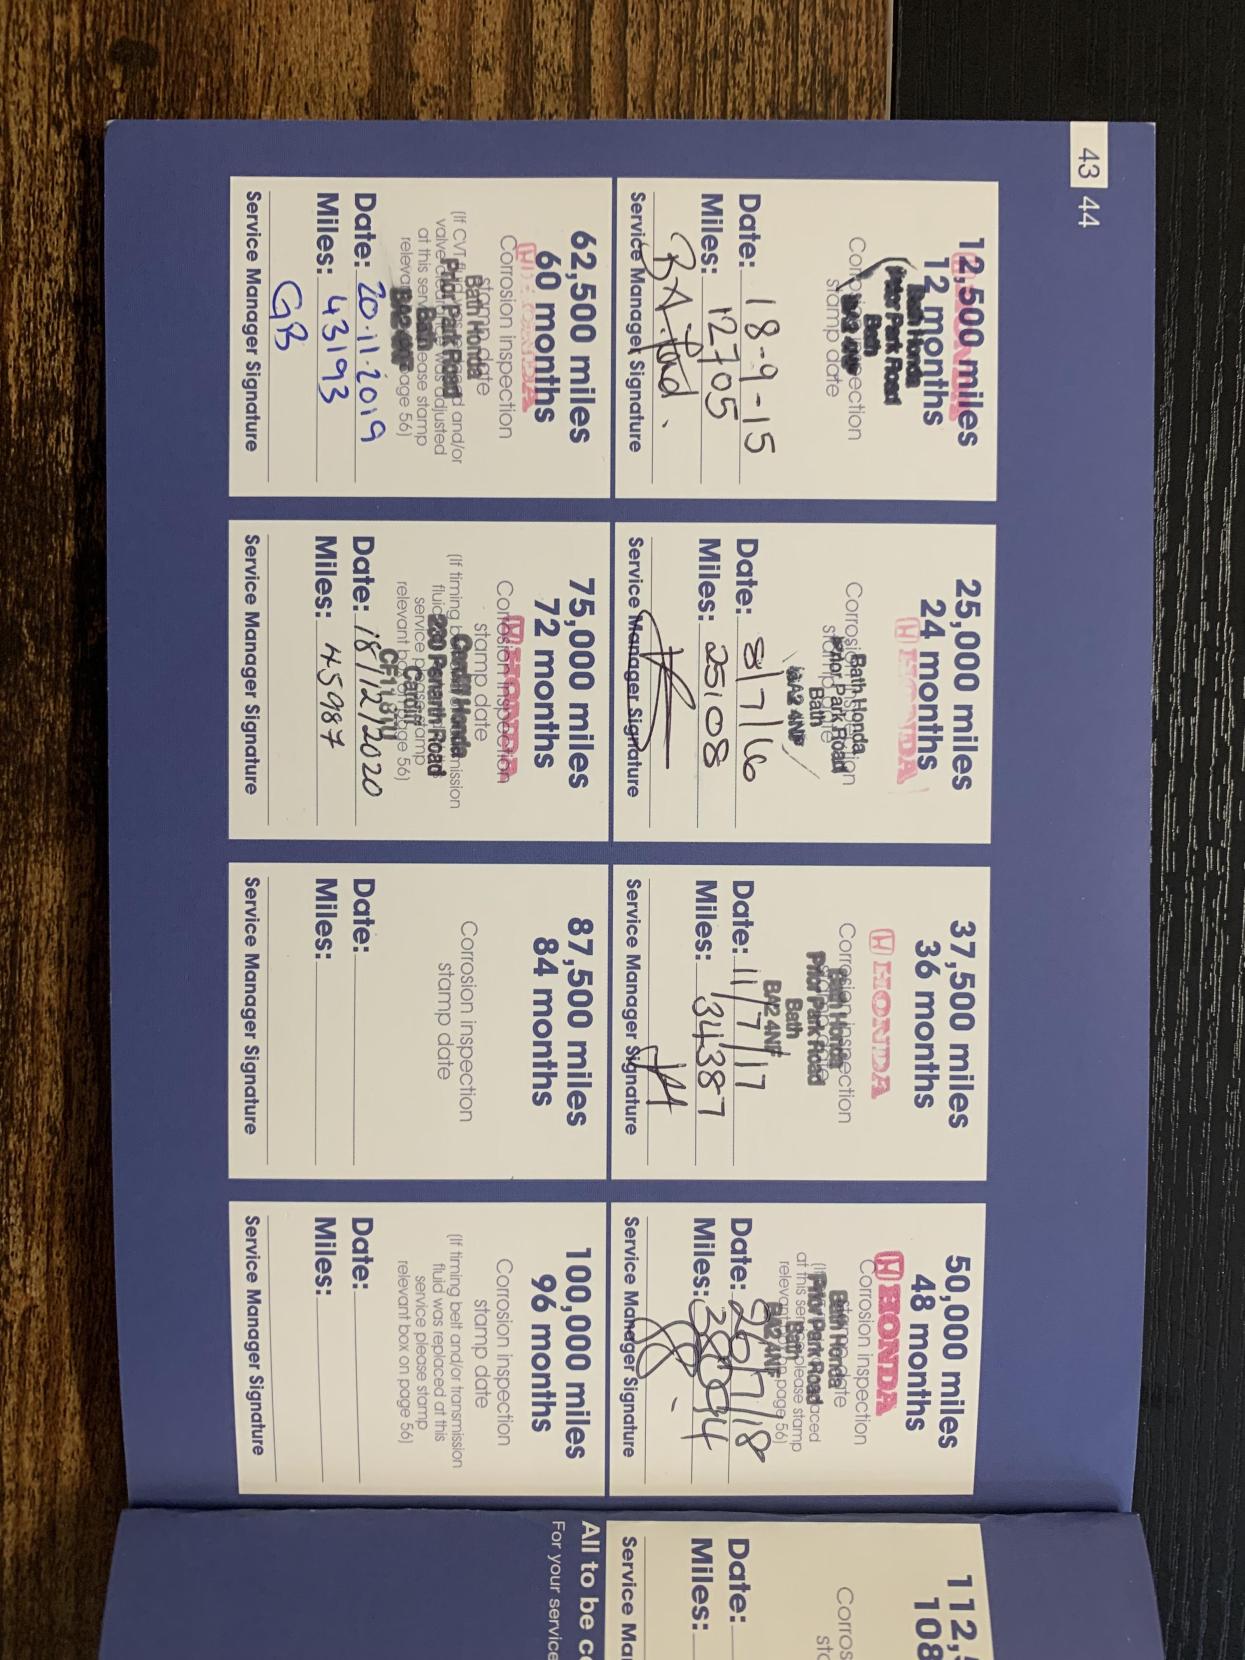 43 44
12,500 miles
12 months
HONDA
Bath Honda
Prior Park Road
Bath
BA2 4NF
Corrosion inspection
stamp date
Date: 18-9-15
Miles: 12705
Service Manager Signature
25,000 miles
24 months
HONDA
Corrosion inspection
stamp date
Bath Honda
Prior Park Road
Bath
BA2 4NF
Date: 8/7/16
Miles: 25108
Service Manager Signature
37,500 miles
36 months
HONDA
Corrosion inspection
Bath Honda
Prior Park Road
Bath
BA2 4NF
Date: 11/7/17
Miles: 34387
Service Manager Signature
50,000 miles
48 months
HONDA
Corrosion inspection
stamp date
Bath Honda
Prior Park Road
Bath
BA2 4NF
at this service please stamp
relevant box on page 56)
Date: 26/7/18
Miles:
Service Manager Signature
62,500 miles
60 months
HONDA
Corrosion inspection
stamp date
Bath Honda
Prior Park Road
Bath
BA2 4NF
(If CVT fluid and/or
valve clearance was adjusted
at this service please stamp
relevant box on page 56)
Date: 20.11.2019
Miles: 43193
GB
Service Manager Signature
75,000 miles
72 months
HONDA
Corrosion inspection
stamp date
Cardiff Honda
230 Penarth Road
Cardiff
CF11 8TU
(If timing belt and/or transmission
fluid was replaced at this
service please stamp
relevant box on page 56)
Date: 18/12/2020
Miles: 45987
Service Manager Signature
87,500 miles
84 months
Corrosion inspection
stamp date
Date:
Miles:
Service Manager Signature
100,000 miles
96 months
Corrosion inspection
stamp date
(If timing belt and/or transmission
fluid was replaced at this
service please stamp
relevant box on page 56)
Date:
Miles:
Service Manager Signature
112,5
108
Corros
Date:
Miles:
Service Ma
All to be co
For your service